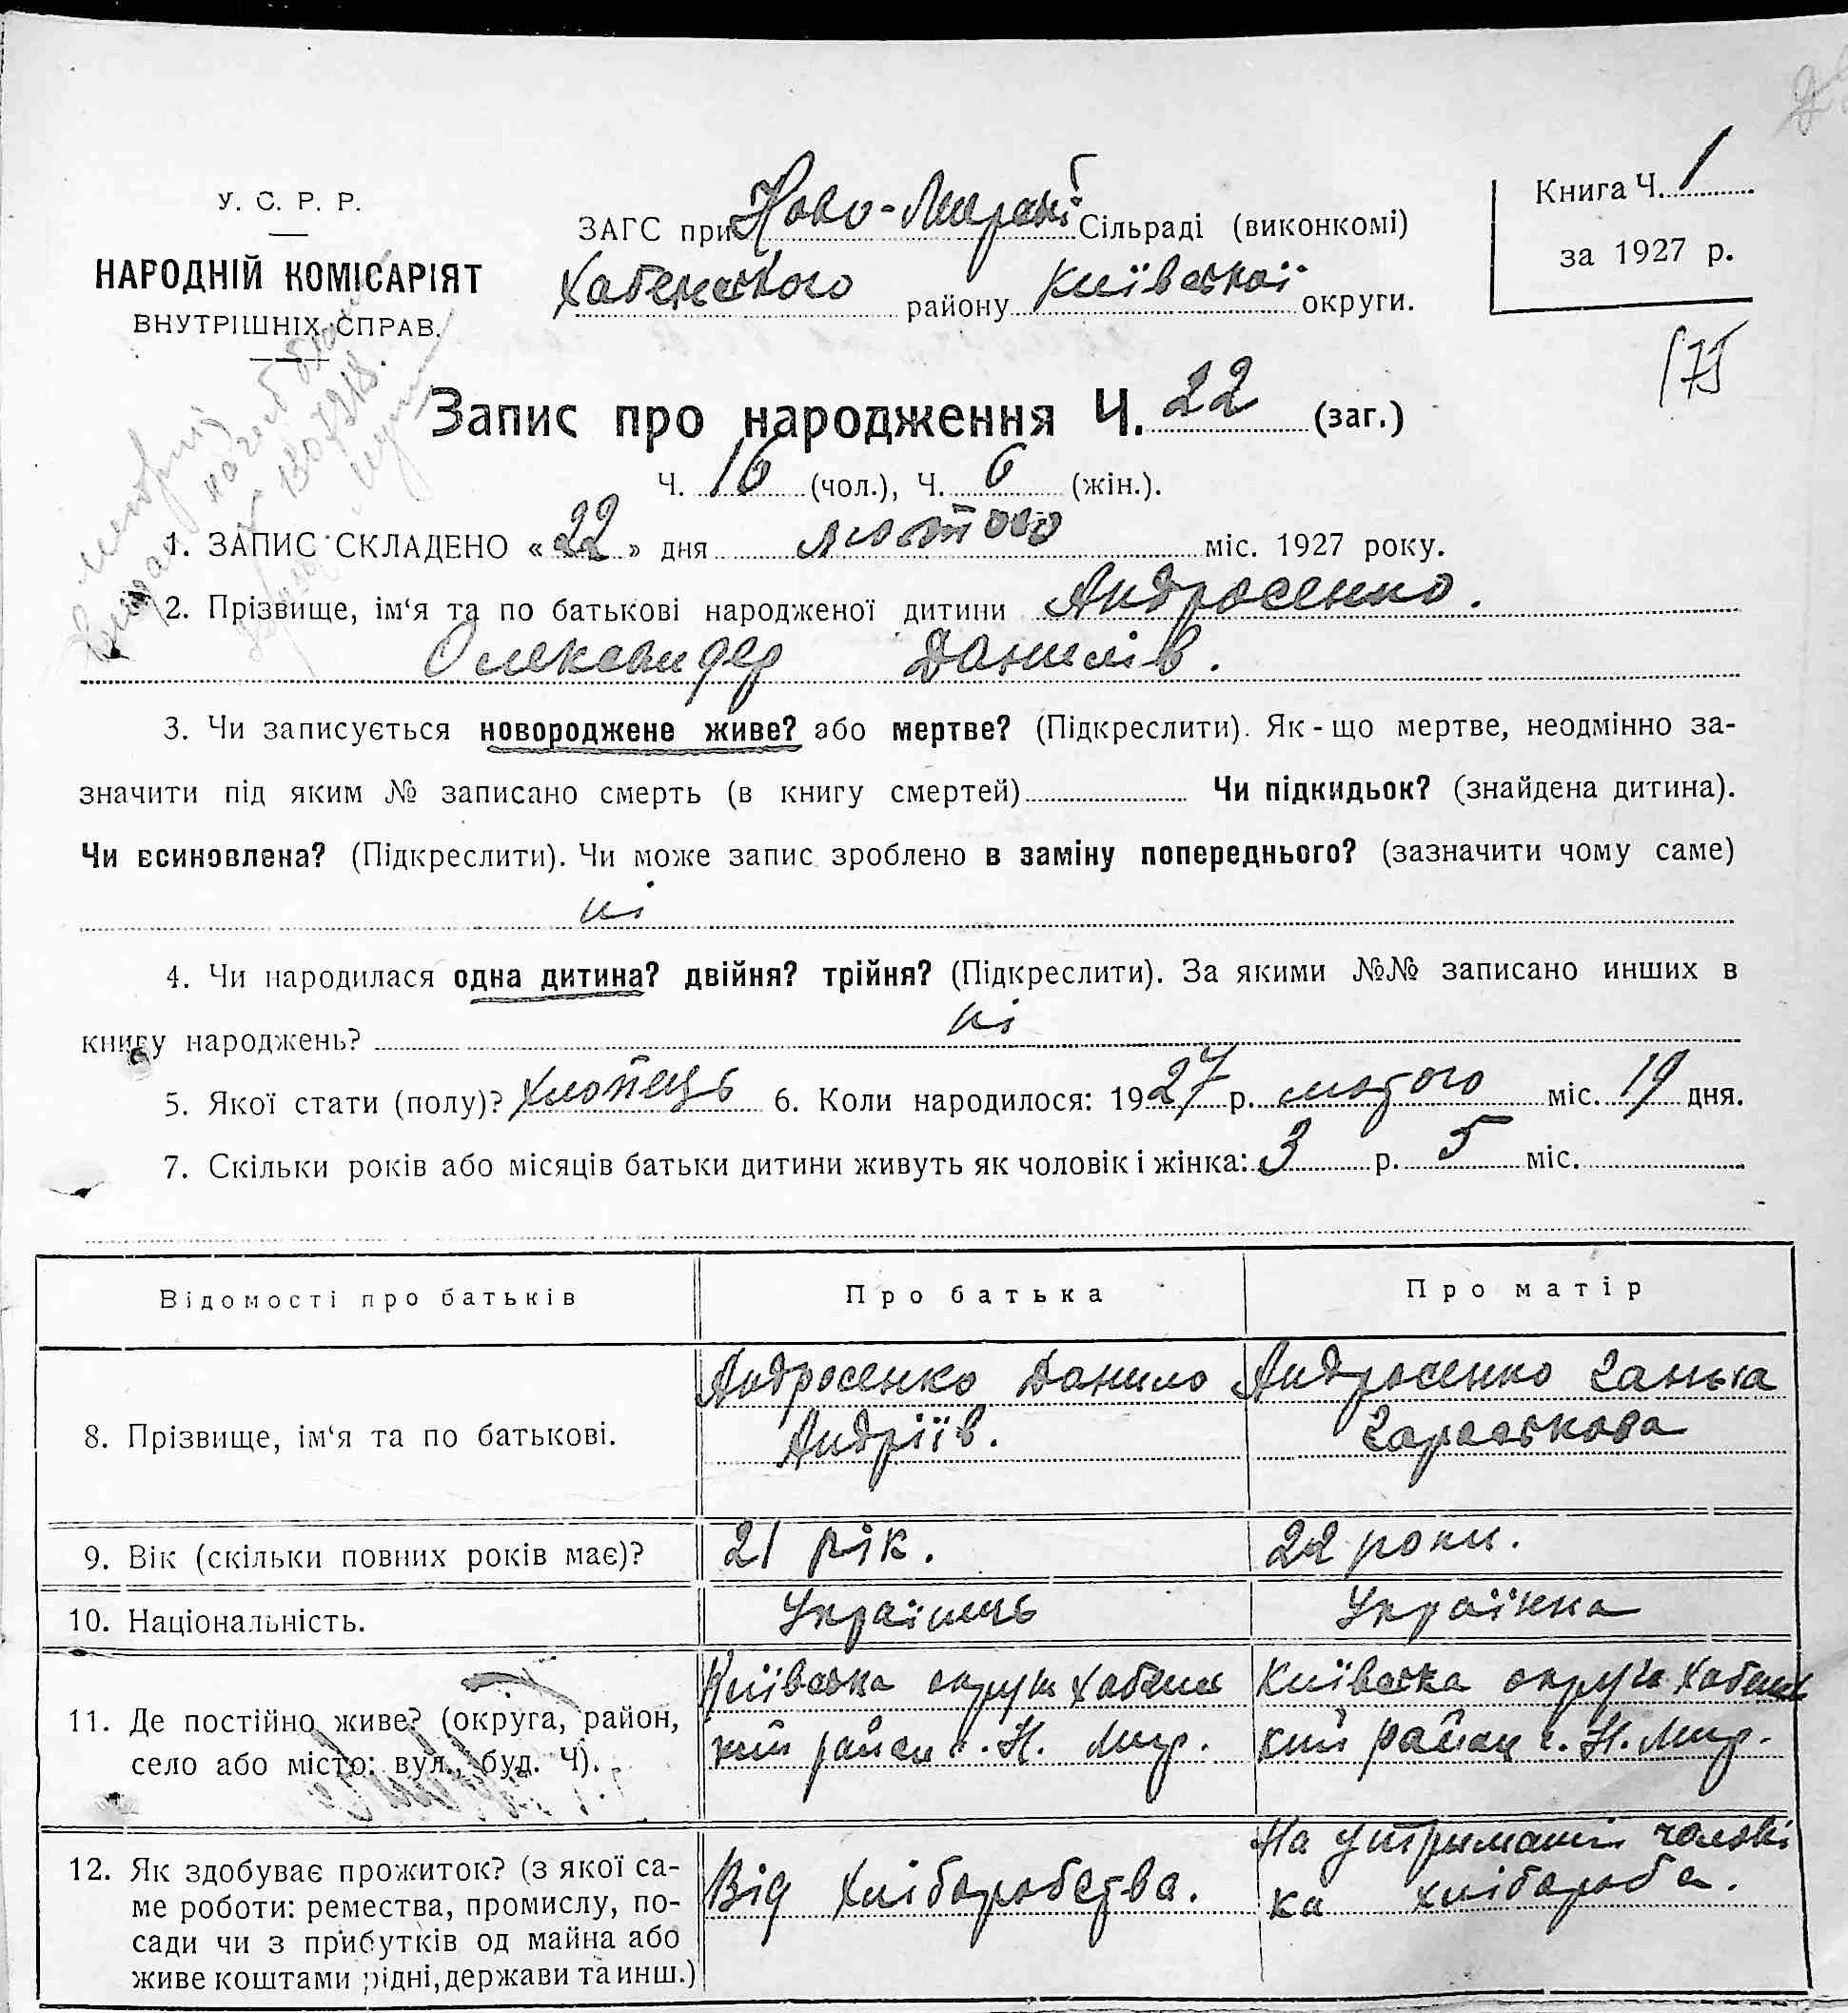 У. С. Р. Р.
НАРОДНІЙ КОМІСАРІЯТ
ВНУТРІШНІХ СПРАВ.
ЗАГС при Ново-Мирскі Сільраді (виконкомі)
Хабенського району Київської округи.
Книга Ч. 1
за 1927 р.
175
Запис про народження Ч. 22 (заг.)
Ч. 16 (чол.), Ч. 6 (жін.).
1. ЗАПИС СКЛАДЕНО « 22 » дня лютого міс. 1927 року.
2. Прізвище, ім‘я та по батькові народженої дитини Андросенко.
Олександер Данилів.
3. Чи записується новороджене живе? або мертве? (Підкреслити). Як-що мертве, неодмінно за-
значити під яким № записано смерть (в книгу смертей) Чи підкидьок? (знайдена дитина).
Чи всиновлена? (Підкреслити). Чи може запис зроблено в заміну попереднього? (зазначити чому саме)
ні
4. Чи народилася одна дитина? двійня? трійня? (Підкреслити). За якими №№ записано инших в
книгу народжень? ні
5. Якої стати (полу)? Хлопець 6. Коли народилося: 1927 р. лютого міс. 19 дня.
7. Скільки років або місяців батьки дитини живуть як чоловік і жінка: 3 р. 5 міс.
Відомості про батьків Про батька Про матір
8. Прізвище, ім‘я та по батькові.
Андросенко Данило
Андріїв.
Андросенко Ганька
Гараськова
9. Вік (скільки повних років має)? 21 рік. 22 роки.
10. Національність. Українець Українка
11. Де постійно живе? (округа, район,
село або місто: вул., буд. Ч).
Київська округа Хабенс
кий район с. Н. Мир.
Київська округа Хабенс
кий район с. Н. Мир.
12. Як здобуває прожиток? (з якої са-
ме роботи: ремества, промислу, по-
сади чи з прибутків од майна або
живе коштами рідні, держави та инш.)
Від хліборобства.
На утриманні чолові
ка хлібороба.